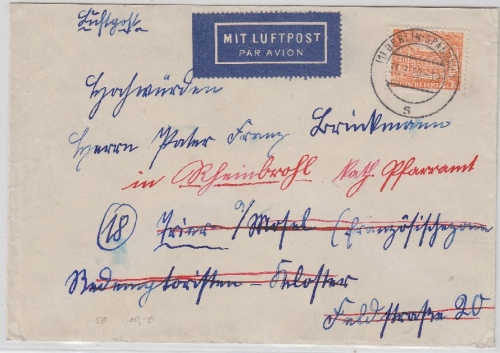 Luftpost
MIT LUFTPOST
PAR AVION
(1) BERLIN-SPANDAU
S
Hochwürden
Herrn Pater Franz Brückmann
in Rheinbrohl Kath. Pfarramt
(18) Trier a/Mosel (Französischezone
Redemptoristen-Kloster
Feldstraße 20